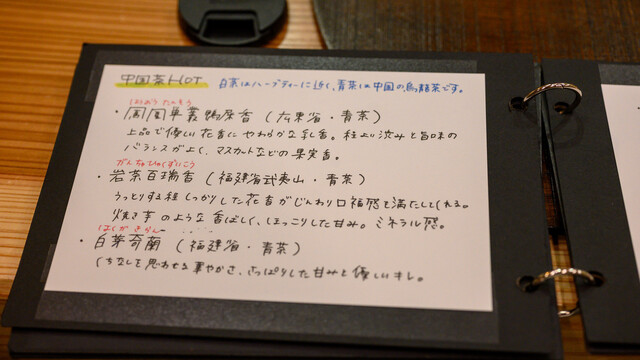 中国茶HOT 白茶はハーブティーに近く、青茶は中国の烏龍茶です。
ほうおうたんそう
・鳳凰単叢鴨屎香（広東省・青茶）
上品で優しい花香にやわらかな乳香。程よい渋みと旨味の
バランスがよく、マスカットなどの果実香。
がんちゃひゃくずいこう
・岩茶百瑞香（福建省武夷山・青茶）
うっとりする程しっかりした花香がじんわり口福感を満たしてくれる。
焼き芋のような香ばしく、ほっこりした甘み。ミネラル感。
はくがきらん
・白芽奇蘭（福建省・青茶）
くちなしを思わせる華やかさ、さっぱりした甘みと優しいキレ。